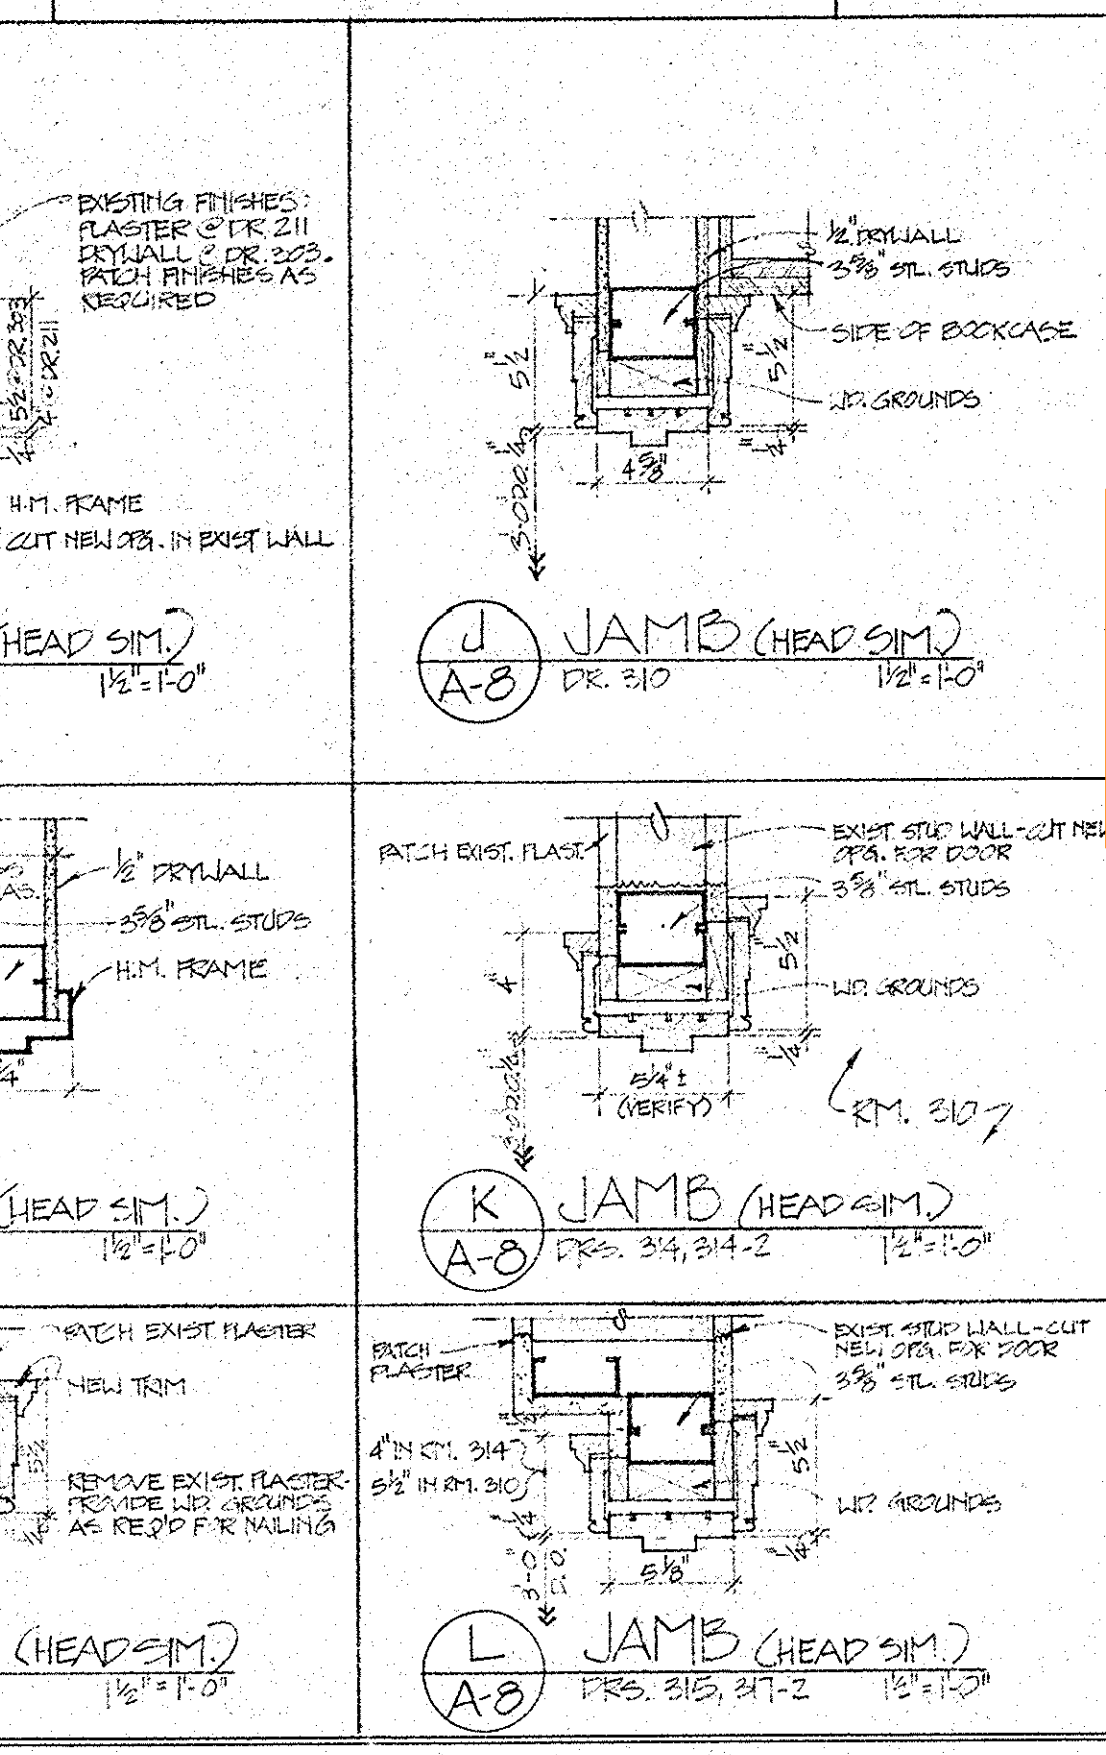 EXISTING FINISHES:
PLASTER @ DR. 211
DRYWALL @ DR. 203.
PATCH FINISHES AS
REQUIRED
5½ @ DR. 303
4" @ DR. 211
¼"
H.M. FRAME
CUT NEW OPG. IN EXIST WALL
(HEAD SIM.)
1½"=1'-0"
½" DRYWALL
3⅝" STL. STUDS
SIDE OF BOOKCASE
WD. GROUNDS
5½"
5½"
¼"
¼"
4⅝"
3'-0" D.O.
J
A-8
JAMB (HEAD SIM.)
DR. 310
1½"=1'-0"
½" DRYWALL
3⅝" STL. STUDS
H.M. FRAME
(HEAD SIM.)
1½"=1'-0"
PATCH EXIST. PLAST.
EXIST. STUD WALL-CUT NEW
OPG. FOR DOOR
3⅝" STL. STUDS
WD. GROUNDS
4"
5½"
¼"
5¼" ±
(VERIFY)
RM. 310
K
A-8
JAMB (HEAD SIM.)
DRS. 314, 314-2
1½"=1'-0"
PATCH EXIST. PLASTER
NEW TRIM
5½
REMOVE EXIST. PLASTER-
PROVIDE WD. GROUNDS
AS REQ'D FOR NAILING
(HEAD SIM.)
1½"=1'-0"
PATCH
PLASTER
EXIST. STUD WALL-CUT
NEW OPG. FOR DOOR
3⅝" STL. STUDS
4" IN RM. 314
5½" IN RM. 310
5½"
WD. GROUNDS
¼"
¼"
3'-0"
D.O.
5⅛"
L
A-8
JAMB (HEAD SIM.)
DRS. 315, 317-2
1½"=1'-0"